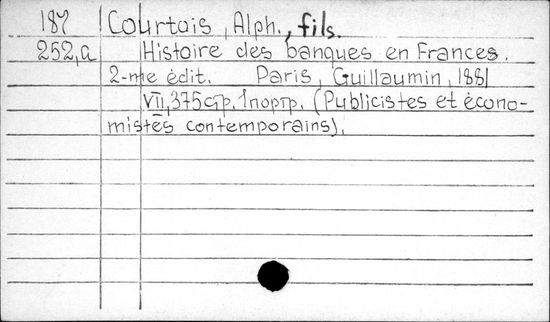 187 Courtois, Alph., fils.
252,a Histoire des banques en Frances.
2-me édit. Paris, Guillaumin, 1881
VII, 375 стр. 1 портр. (Publicistes et écono-
mistes contemporains).